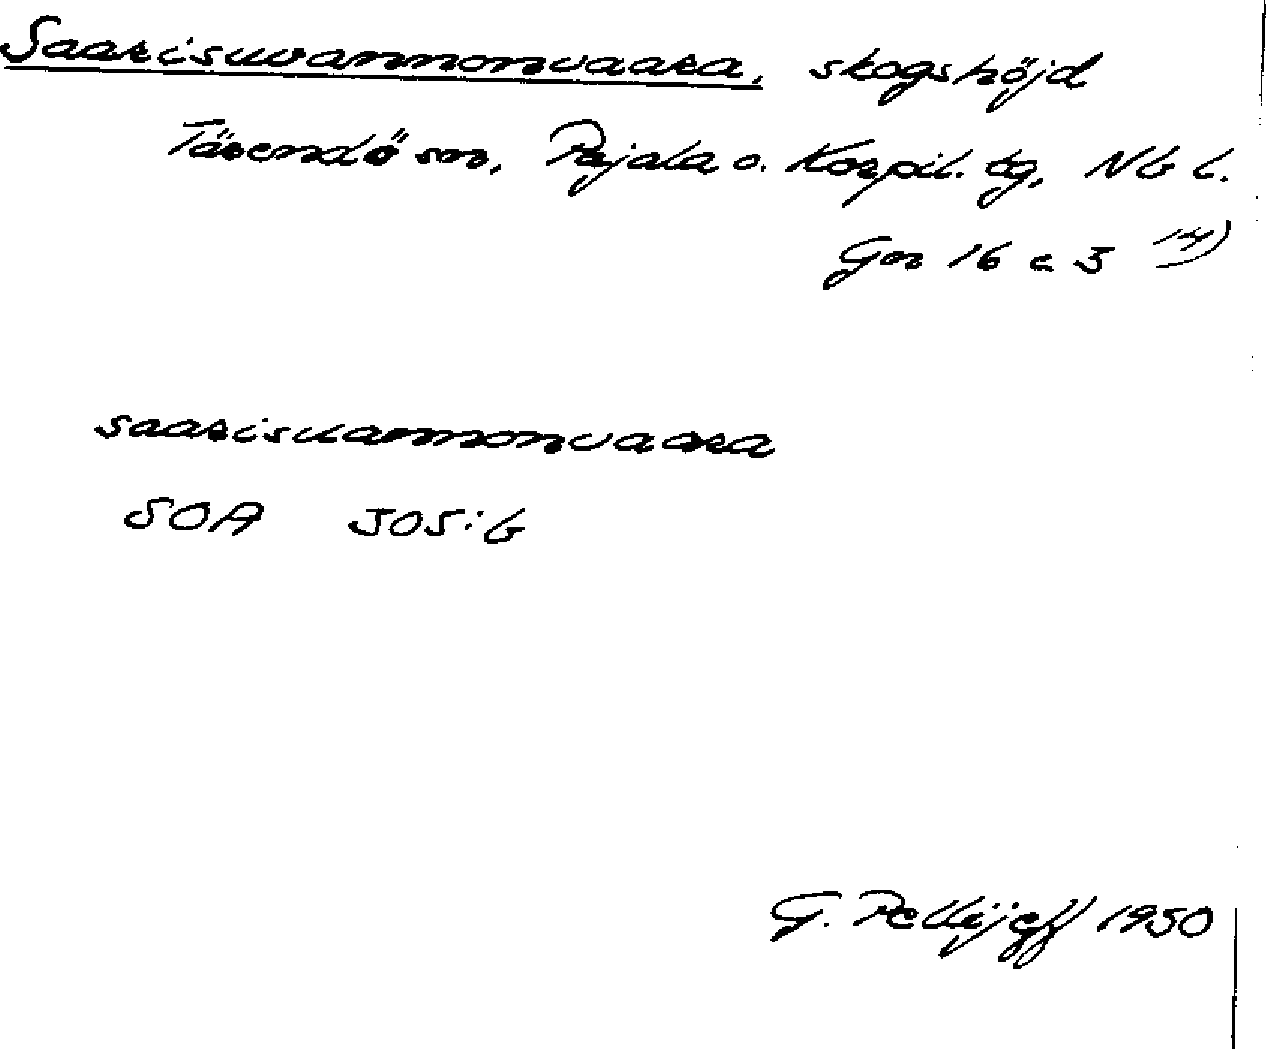 Saarisuvannonvaara, skogshöjd
Tärendö sn, Pajala o. Korpil. tg, Nb l.
Gen 16 c 3 14)
saarisuannonvaara
SOA JOS:G
G. Pellijeff 1950